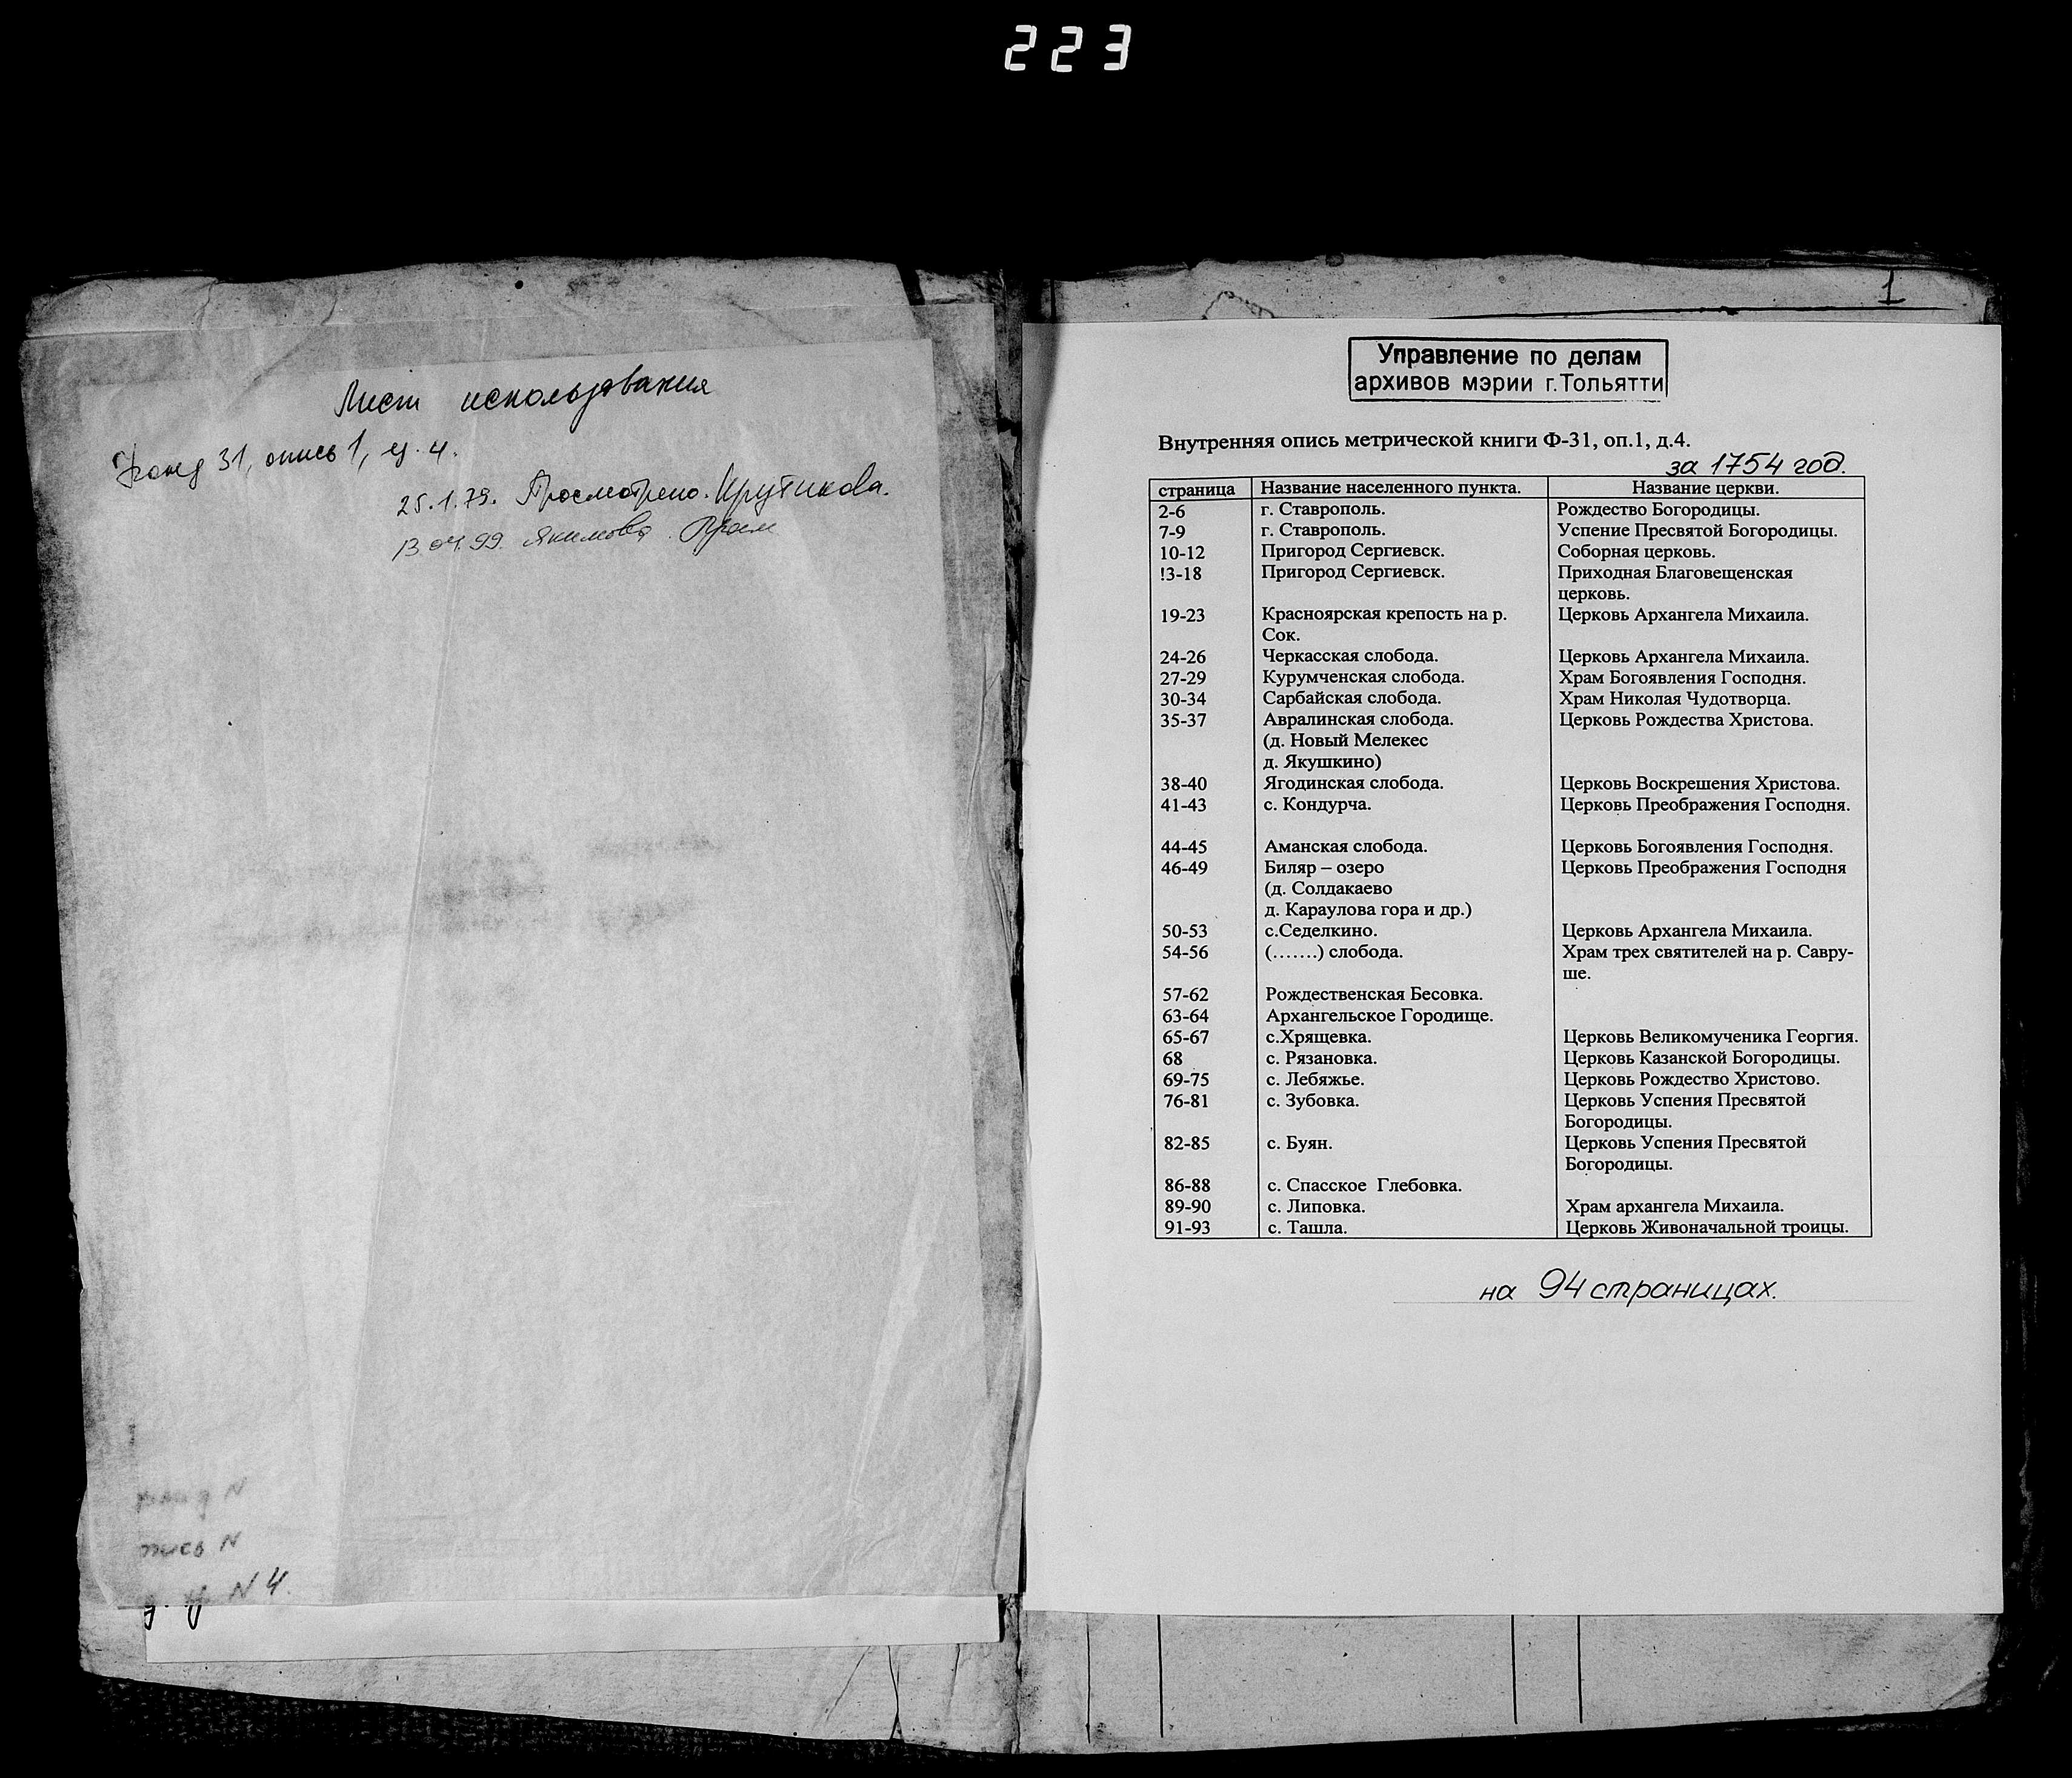 223
Лист использования
Фонд 31, опись 1, д. 4.
25.1.79. Просмотрено. Крутикова.
13.04.99. Якимова.
N
N
N 4.
1
Управление по делам
архивов мэрии г.Тольятти
Внутренняя опись метрической книги Ф-31, оп.1, д.4.
за 1754 год.
страница Название населенного пункта. Название церкви.
2-6 г. Ставрополь. Рождество Богородицы.
7-9 г. Ставрополь. Успение Пресвятой Богородицы.
10-12 Пригород Сергиевск. Соборная церковь.
!3-18 Пригород Сергиевск. Приходная Благовещенская
церковь.
19-23 Красноярская крепость на р. Церковь Архангела Михаила.
Сок.
24-26 Черкасская слобода. Церковь Архангела Михаила.
27-29 Курумченская слобода. Храм Богоявления Господня.
30-34 Сарбайская слобода. Храм Николая Чудотворца.
35-37 Авралинская слобода. Церковь Рождества Христова.
(д. Новый Мелекес
д. Якушкино)
38-40 Ягодинская слобода. Церковь Воскрешения Христова.
41-43 с. Кондурча. Церковь Преображения Господня.
44-45 Аманская слобода. Церковь Богоявления Господня.
46-49 Биляр – озеро Церковь Преображения Господня
(д. Солдакаево
д. Караулова гора и др.)
50-53 с.Седелкино. Церковь Архангела Михаила.
54-56 (…….) слобода. Храм трех святителей на р. Савру-
ше.
57-62 Рождественская Бесовка.
63-64 Архангельское Городище.
65-67 с.Хрящевка. Церковь Великомученика Георгия.
68 с. Рязановка. Церковь Казанской Богородицы.
69-75 с. Лебяжье. Церковь Рождество Христово.
76-81 с. Зубовка. Церковь Успения Пресвятой
Богородицы.
82-85 с. Буян. Церковь Успения Пресвятой
Богородицы.
86-88 с. Спасское Глебовка.
89-90 с. Липовка. Храм архангела Михаила.
91-93 с. Ташла. Церковь Живоначальной троицы.
на 94 страницах.